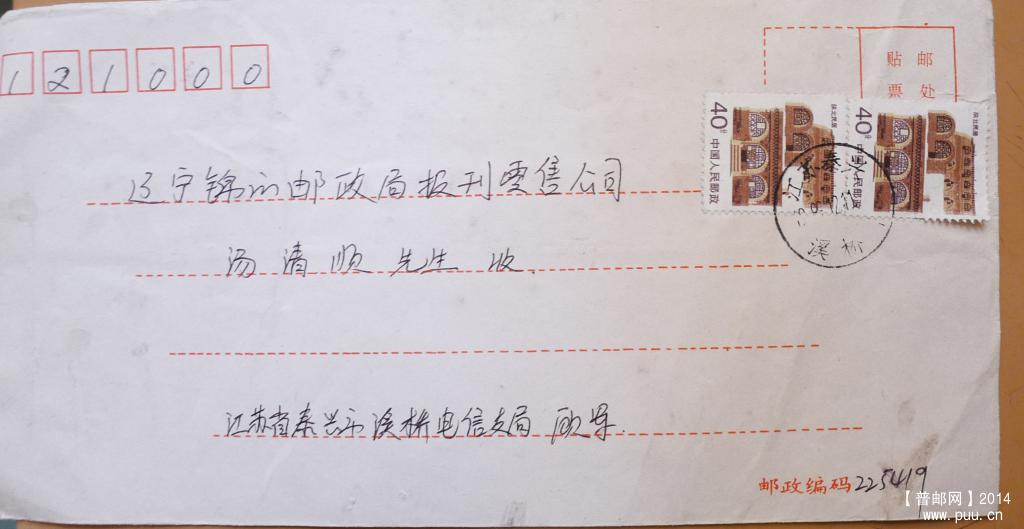 121000
贴邮
票处
40分
中国人民邮政
陕北民居
40分
中国人民邮政
陕北民居
江苏泰兴
溪桥
辽宁锦州邮政局报刊零售公司
汤清顺 先生 收
江苏省泰兴市溪桥电信支局 顾军.
邮政编码225419
【普邮网】2014
www.puu.cn